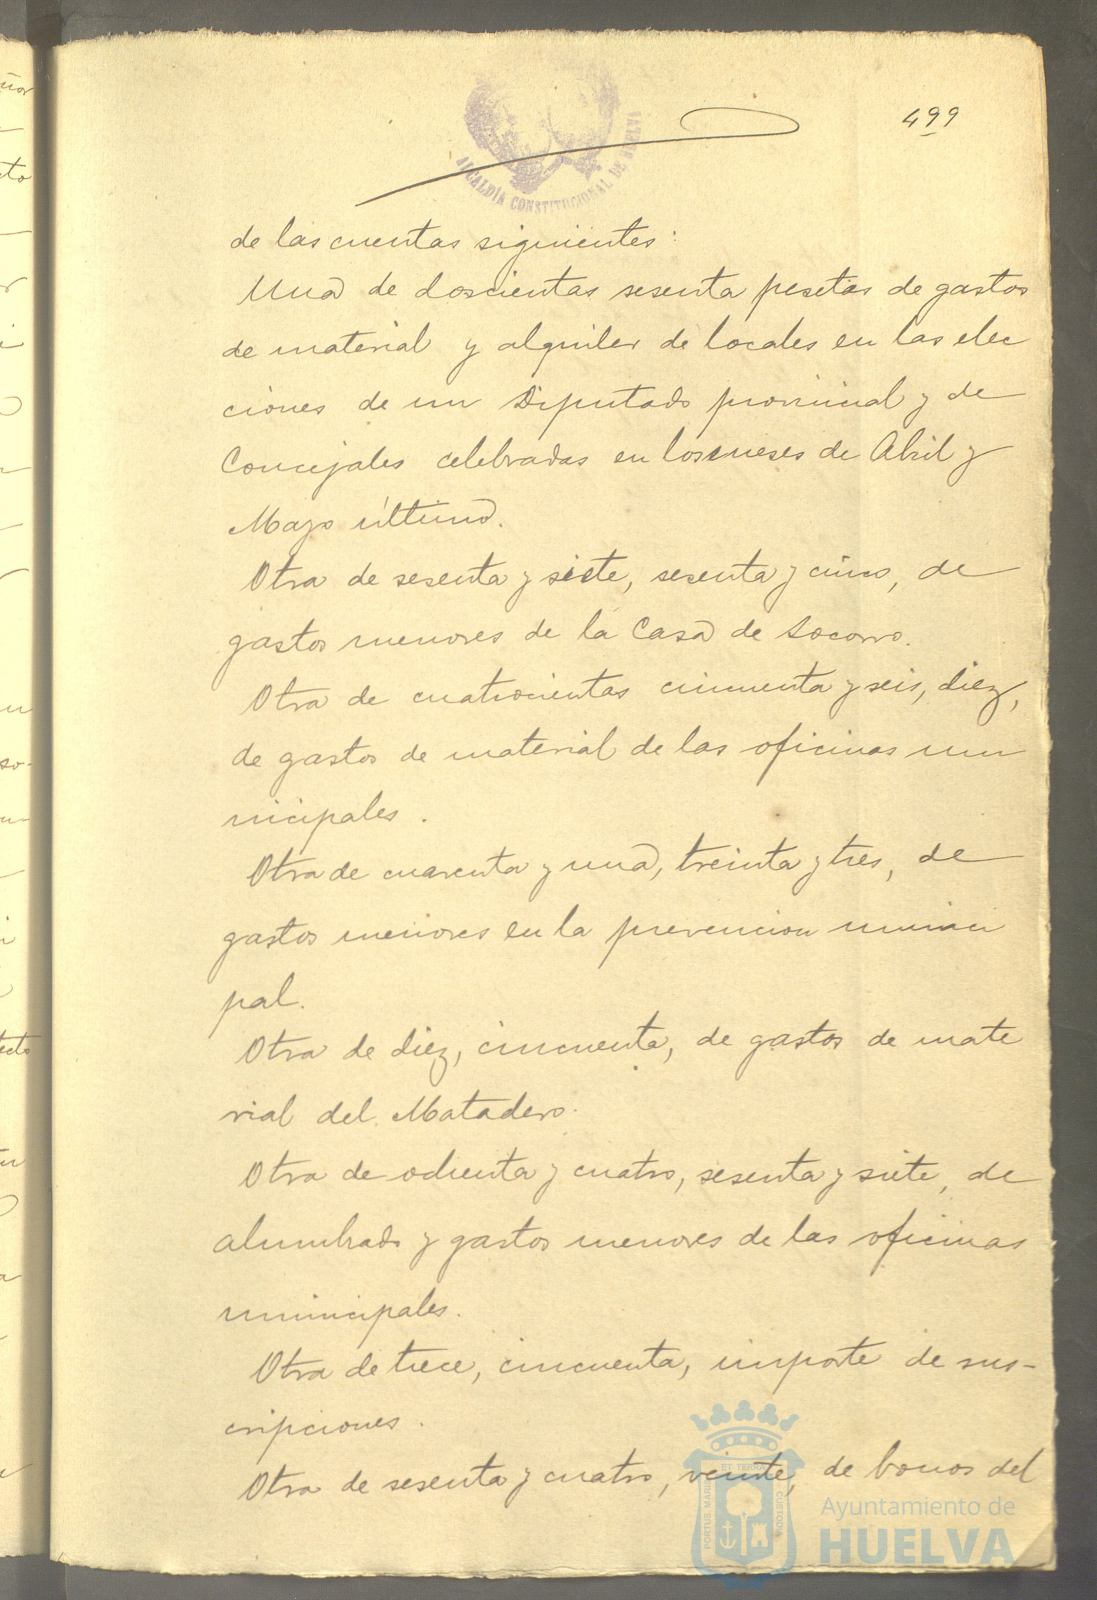 499
ALCALDÍA CONSTITUCIONAL DE HUELVA
de las cuentas siguientes:
Una de doscientas sesenta pesetas de gastos
de material y alquiler de locales en las elec
ciones de un Diputado provincial y de
Concejales celebradas en los meses de Abril y
Mayo último.
Otra de sesenta y siete, sesenta y cinco, de
gastos menores de la Casa de Socorro.
Otra de cuatrocientas cincuenta y seis, diez,
de gastos de material de las oficinas mu
nicipales.
Otra de cuarenta y una, treinta y tres, de
gastos menores en la prevencion munici
pal.
Otra de diez, cincuenta, de gastos de mate
rial del Matadero.
Otra de ochenta y cuatro, sesenta y siete, de
alumbrado y gastos menores de las oficinas
municipales.
Otra de trece, cincuenta, importe de sus-
cripciones.
Otra de sesenta y cuatro, veinte, de bonos del
PORTUS MARIS ET TERRAE CUSTODIA
Ayuntamiento de
HUELVA